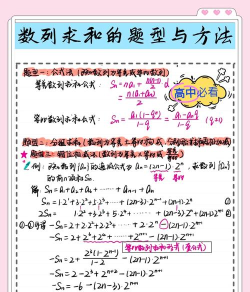 数列求和的题型与方法
题型一：公式法（
等差数列求和公式：Sn = na₁ + n(n-1)/2 d
= n(a₁+an)/2
高中必看
等比数列求和公式：Sn = a₁(1-qⁿ)/1-q = a₁-anq/1-q (q≠1)
题型二：分组求和
题型三：错位相减法
例：已知数列{an}的通项公式 an=(2n-1)·2ⁿ，求数列{an}
的前n项和Sn.
解：Sn=a₁+a₂+a₃+……+an-₁+an
Sn=1·2¹+3·2²+5·2³+……+(2n-3)2ⁿ⁻¹+(2n-1)2ⁿ ①
2Sn= 1·2²+3·2³+5·2⁴+……+(2n-3)·2ⁿ+(2n-1)2ⁿ⁺¹ ②
①-②得 -Sn=2+2·2²+2·2³+……+2·2ⁿ-(2n-1)·2ⁿ⁺¹
-Sn=2+2³+2⁴+……+2ⁿ⁺¹-(2n-1)·2ⁿ⁺¹
等比数列求和形式
-Sn=2-2³+2ⁿ⁺²-(2n-1)·2ⁿ⁺¹
-Sn=-6-(2n-3)·2ⁿ⁺¹